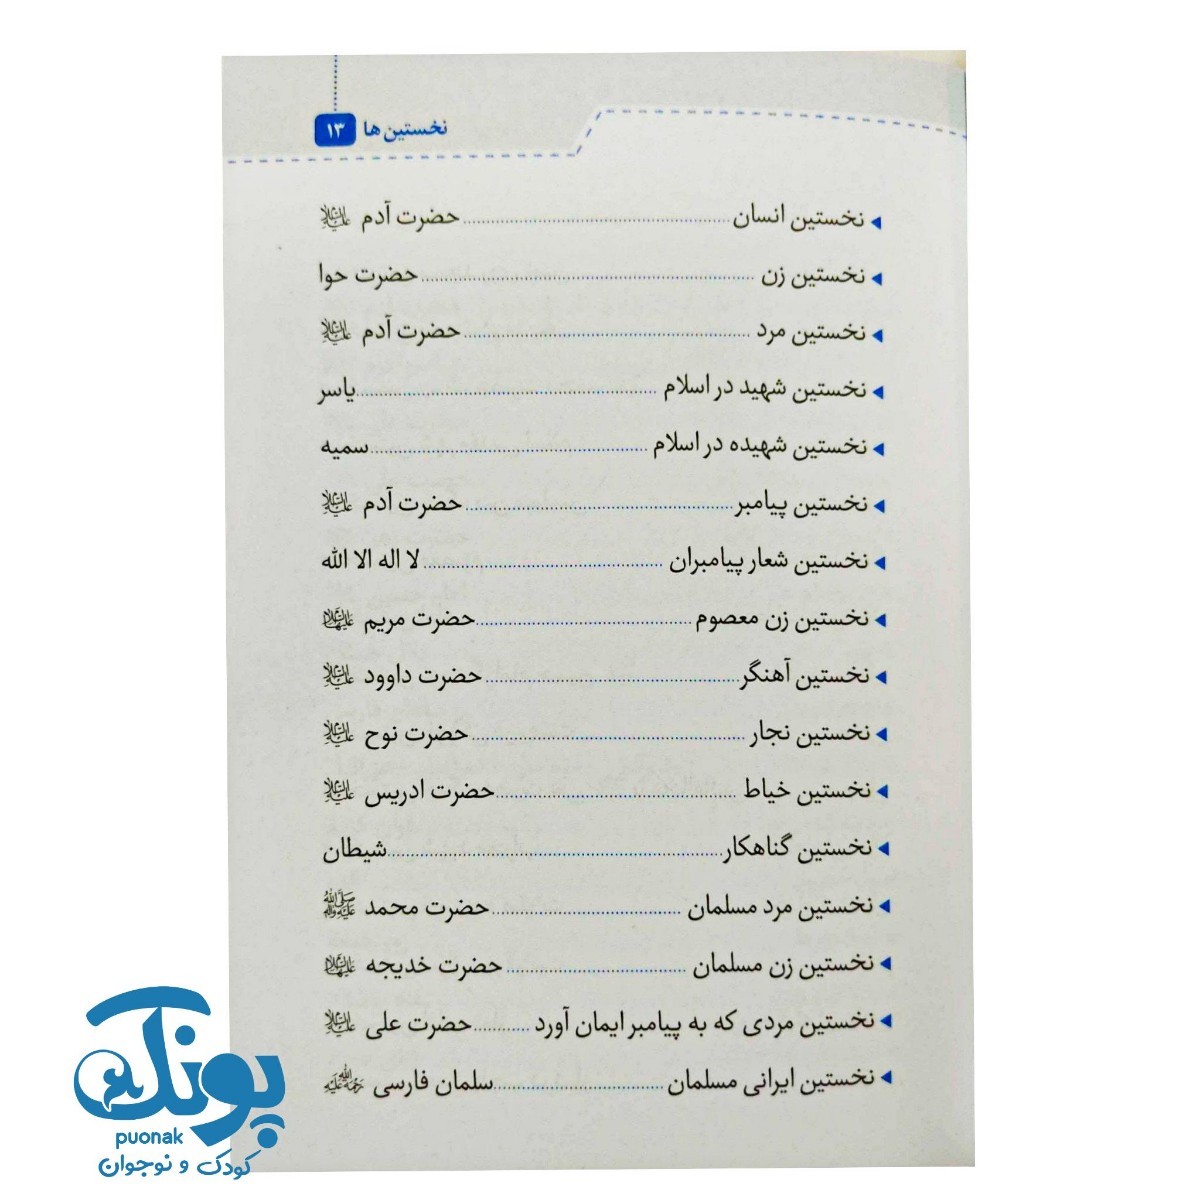 نخستین ها ۱۳
نخستین انسان حضرت آدم علیه‌السلام
نخستین زن حضرت حوا
نخستین مرد حضرت آدم علیه‌السلام
نخستین شهید در اسلام یاسر
نخستین شهیده در اسلام سمیه
نخستین پیامبر حضرت آدم علیه‌السلام
نخستین شعار پیامبران لا اله الا الله
نخستین زن معصوم حضرت مریم علیهاالسلام
نخستین آهنگر حضرت داوود علیه‌السلام
نخستین نجار حضرت نوح علیه‌السلام
نخستین خیاط حضرت ادریس علیه‌السلام
نخستین گناهکار شیطان
نخستین مرد مسلمان حضرت محمد صلی‌الله‌علیه‌وآله
نخستین زن مسلمان حضرت خدیجه علیهاالسلام
نخستین مردی که به پیامبر ایمان آورد حضرت علی علیه‌السلام
نخستین ایرانی مسلمان سلمان فارسی رحمةالله‌علیه
پونک
puonak
کودک و نوجوان